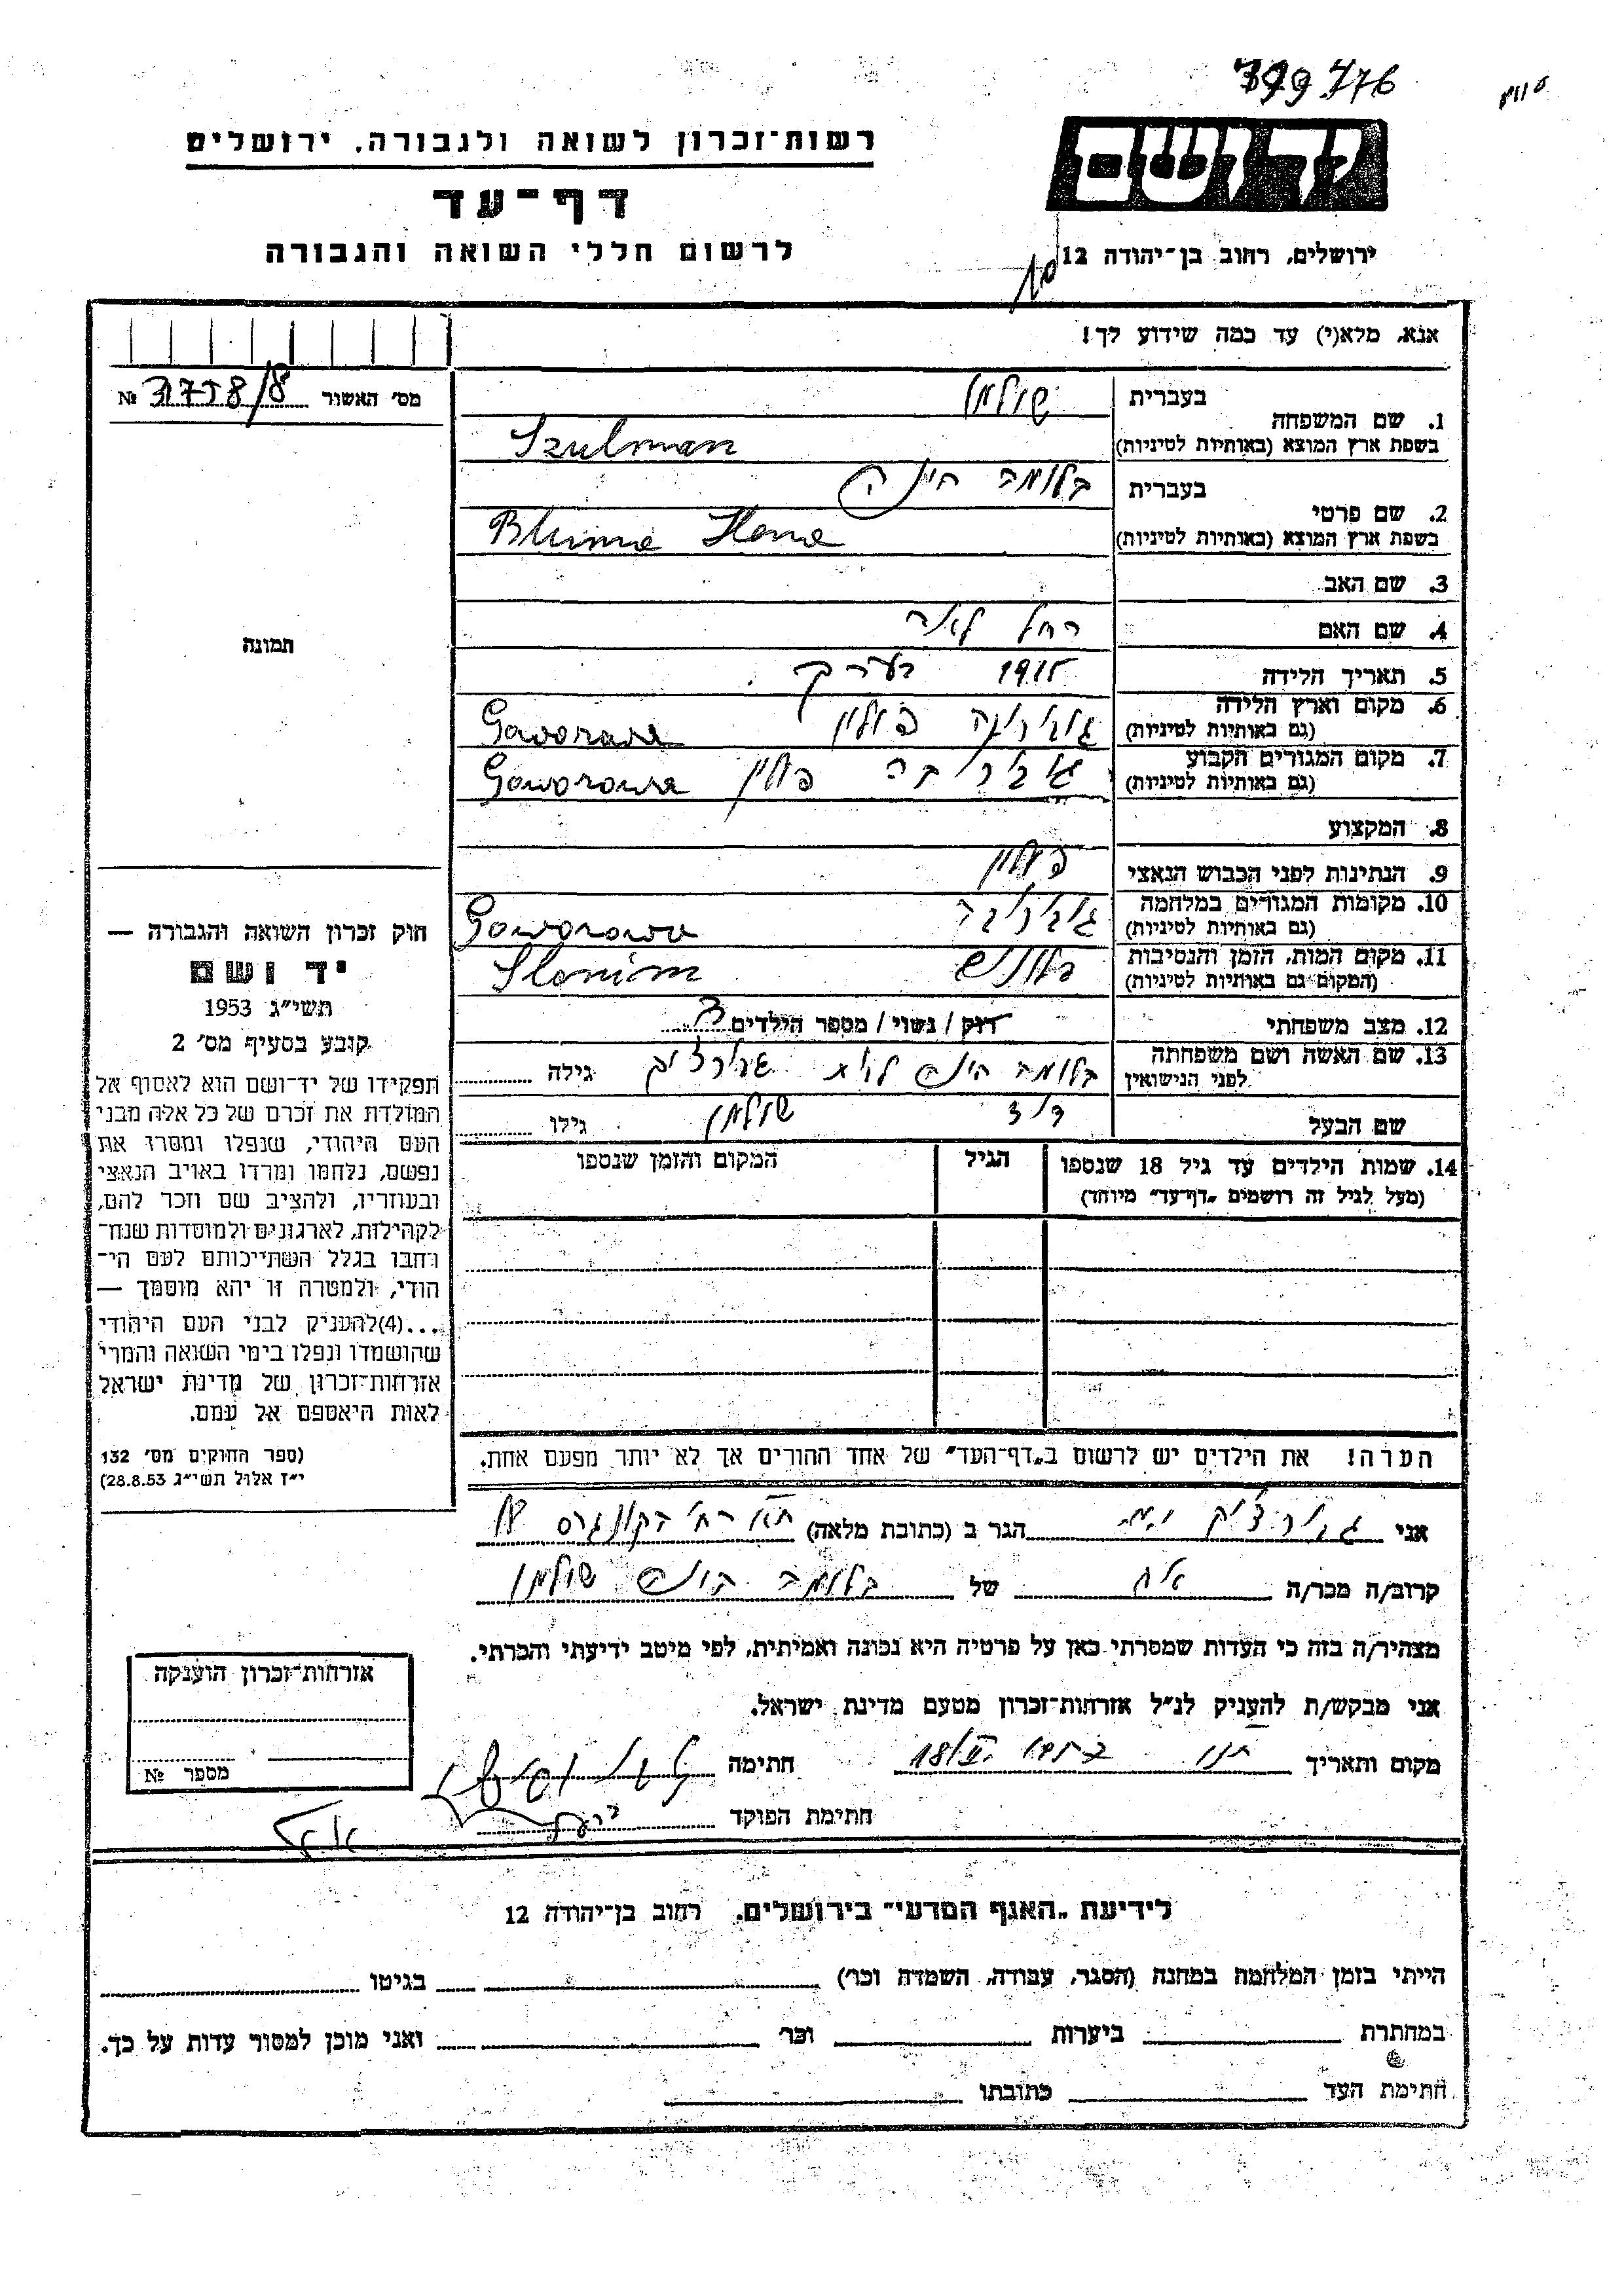 799776
יד ושם
ירושלים, רחוב בן־יהודה 12
רשות־זכרון לשואה ולגבורה, ירושלים
דף־עד
לרשום חללי השואה והגבורה
אנא, מלא(י) עד כמה שידוע לך!
מס׳ האשור № 3758/8
1. שם המשפחה
בעברית שולמן
בשפת ארץ המוצא (באותיות לטיניות) Szulman
2. שם פרטי
בעברית בלומה
בשפת ארץ המוצא (באותיות לטיניות) Bluma Hena
3. שם האב
4. שם האם רחל לאה
5. תאריך הלידה 1915 בערך
6. מקום וארץ הלידה
(גם באותיות לטיניות) גוברובה פולין Goworowa
7. מקום המגורים הקבוע
(גם באותיות לטיניות) גוברובה פולין Goworowa
8. המקצוע
9. הנתינות לפני הכבוש הנאצי פולין
10. מקומות המגורים במלחמה
(גם באותיות לטיניות) גוברובה Goworowa
11. מקום המות, הזמן והנסיבות
(המקום גם באותיות לטיניות) Slonim
12. מצב משפחתי רוק / נשוי / מספר הילדים
13. שם האשה ושם משפחתה
לפני הנישואין בלומה גילה
שם הבעל דוד שולמן גילו
14. שמות הילדים עד גיל 18 שנספו
(מעל לגיל זה רושמים „דף־עד״ מיוחד)
הגיל
המקום והזמן שנספו
הערה! את הילדים יש לרשום ב„דף־העד״ של אחד ההורים אך לא יותר מפעם אחת.
תמונה
חוק זכרון השואה והגבורה —
יד ושם
תשי״ג 1953
קובע בסעיף מס׳ 2
תפקידו של יד־ושם הוא לאסוף אל
המולדת את זכרם של כל אלה מבני
העם היהודי, שנפלו ומסרו את
נפשם, נלחמו ומרדו באויב הנאצי
ובעוזריו, ולהציב שם וזכר להם,
לקהילות, לארגונים ולמוסדות שנח־
רבו בגלל השתייכותם לעם הי־
הודי, ולמטרה זו יהא מוסמך —
...(4)להעניק לבני העם היהודי
שהושמדו ונפלו בימי השואה והמרי
אזרחות־זכרון של מדינת ישראל
לאות היאספם אל עמם.
(ספר החוקים מס׳ 132
י״ז אלול תשי״ג 28.8.53)
אני הגר ב (כתובת מלאה)
קרוב/ה מכר/ה אח של בלומה שולמן
מצהיר/ה בזה כי העדות שמסרתי כאן על פרטיה היא נכונה ואמיתית, לפי מיטב ידיעתי והכרתי.
אני מבקש/ת להעניק לנ״ל אזרחות־זכרון מטעם מדינת ישראל.
מקום ותאריך חתימה
חתימת הפוקד
אזרחות־זכרון הוענקה
מספר №
לידיעת „האגף המדעי״ בירושלים, רחוב בן־יהודה 12
הייתי בזמן המלחמה במחנה (הסגר, עבודה, השמדה וכו׳) בגיטו
במחתרת ביערות וכו׳ ואני מוכן למסור עדות על כך.
חתימת העד כתובתו